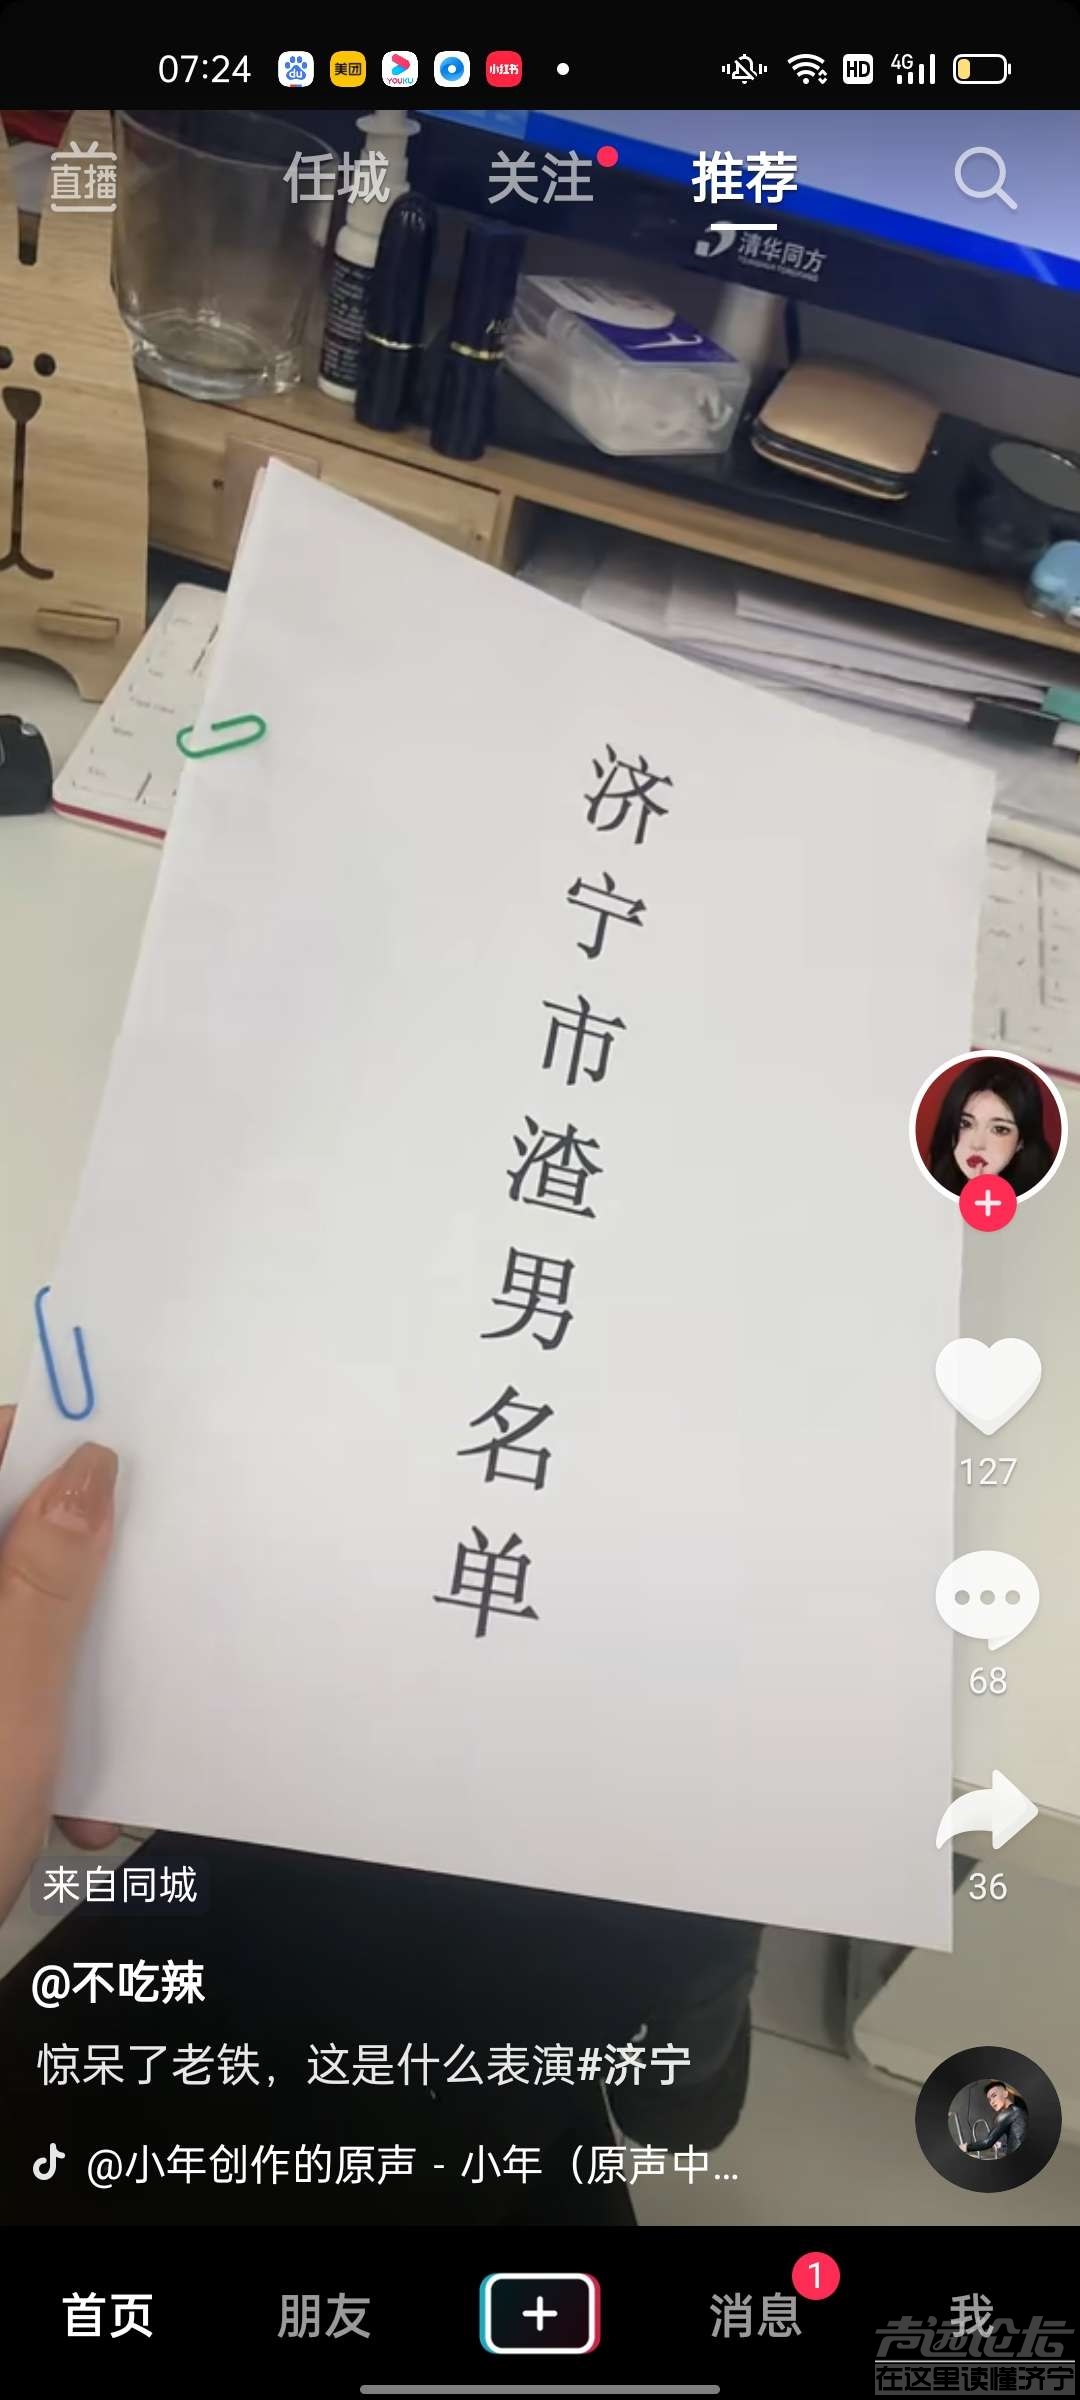 07:24
du
美团
YOUKU
小红书
HD
4G
直播
任城
关注
推荐
清华同方
济宁市渣男名单
127
68
36
来自同城
@不吃辣
惊呆了老铁，这是什么表演#济宁
@小年创作的原声 - 小年（原声中...
首页
朋友
消息
1
我
声远论坛
在这里读懂济宁